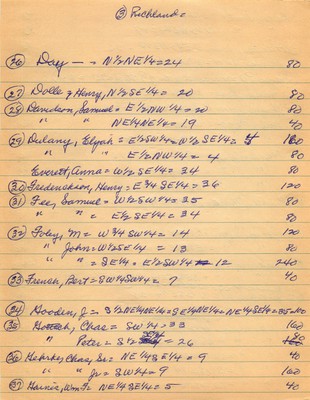 ③ Richland.
(26) Day — - N½NE¼=24 80
(27) Dolle, Henry, N½SE¼ = 20 80
(28) Davidson, Samuel = E½NW¼ = 20 80
" " NE¼NE¼ = 19 40
(29) Dulany, Elijah = E½SW¼=W½SE¼= 4 160
" " E½NW¼ = 4 80
Everett, Anna = W½SE¼ = 34 80
(30) Frederickson, Henry = E¾SE¼ = 36 120
(31) Fee, Samuel = W½SW¼ = 35 80
" " = E½SE¼ = 34 80
(32) Foley, M = W¾SW¼ = 14 120
" John = W½SE¼ = 13 80
" " = SE¼ = E½ 12 240
(33) French, Bert = SW¼SW¼ = 7 40
(34) Gooden, J = S½NE¼NE¼=SE¼NE¼=NE¼SE¼=35
(35) Chas = SW¼ = 33 160
" Peter = S½ = 26 80
(36) Chas, Sr = NE¼SE¼ = 9 40
" " Jr = SW¼ = 9 160
(37) Haines, Wm F = NE¼SE¼ = 5 40